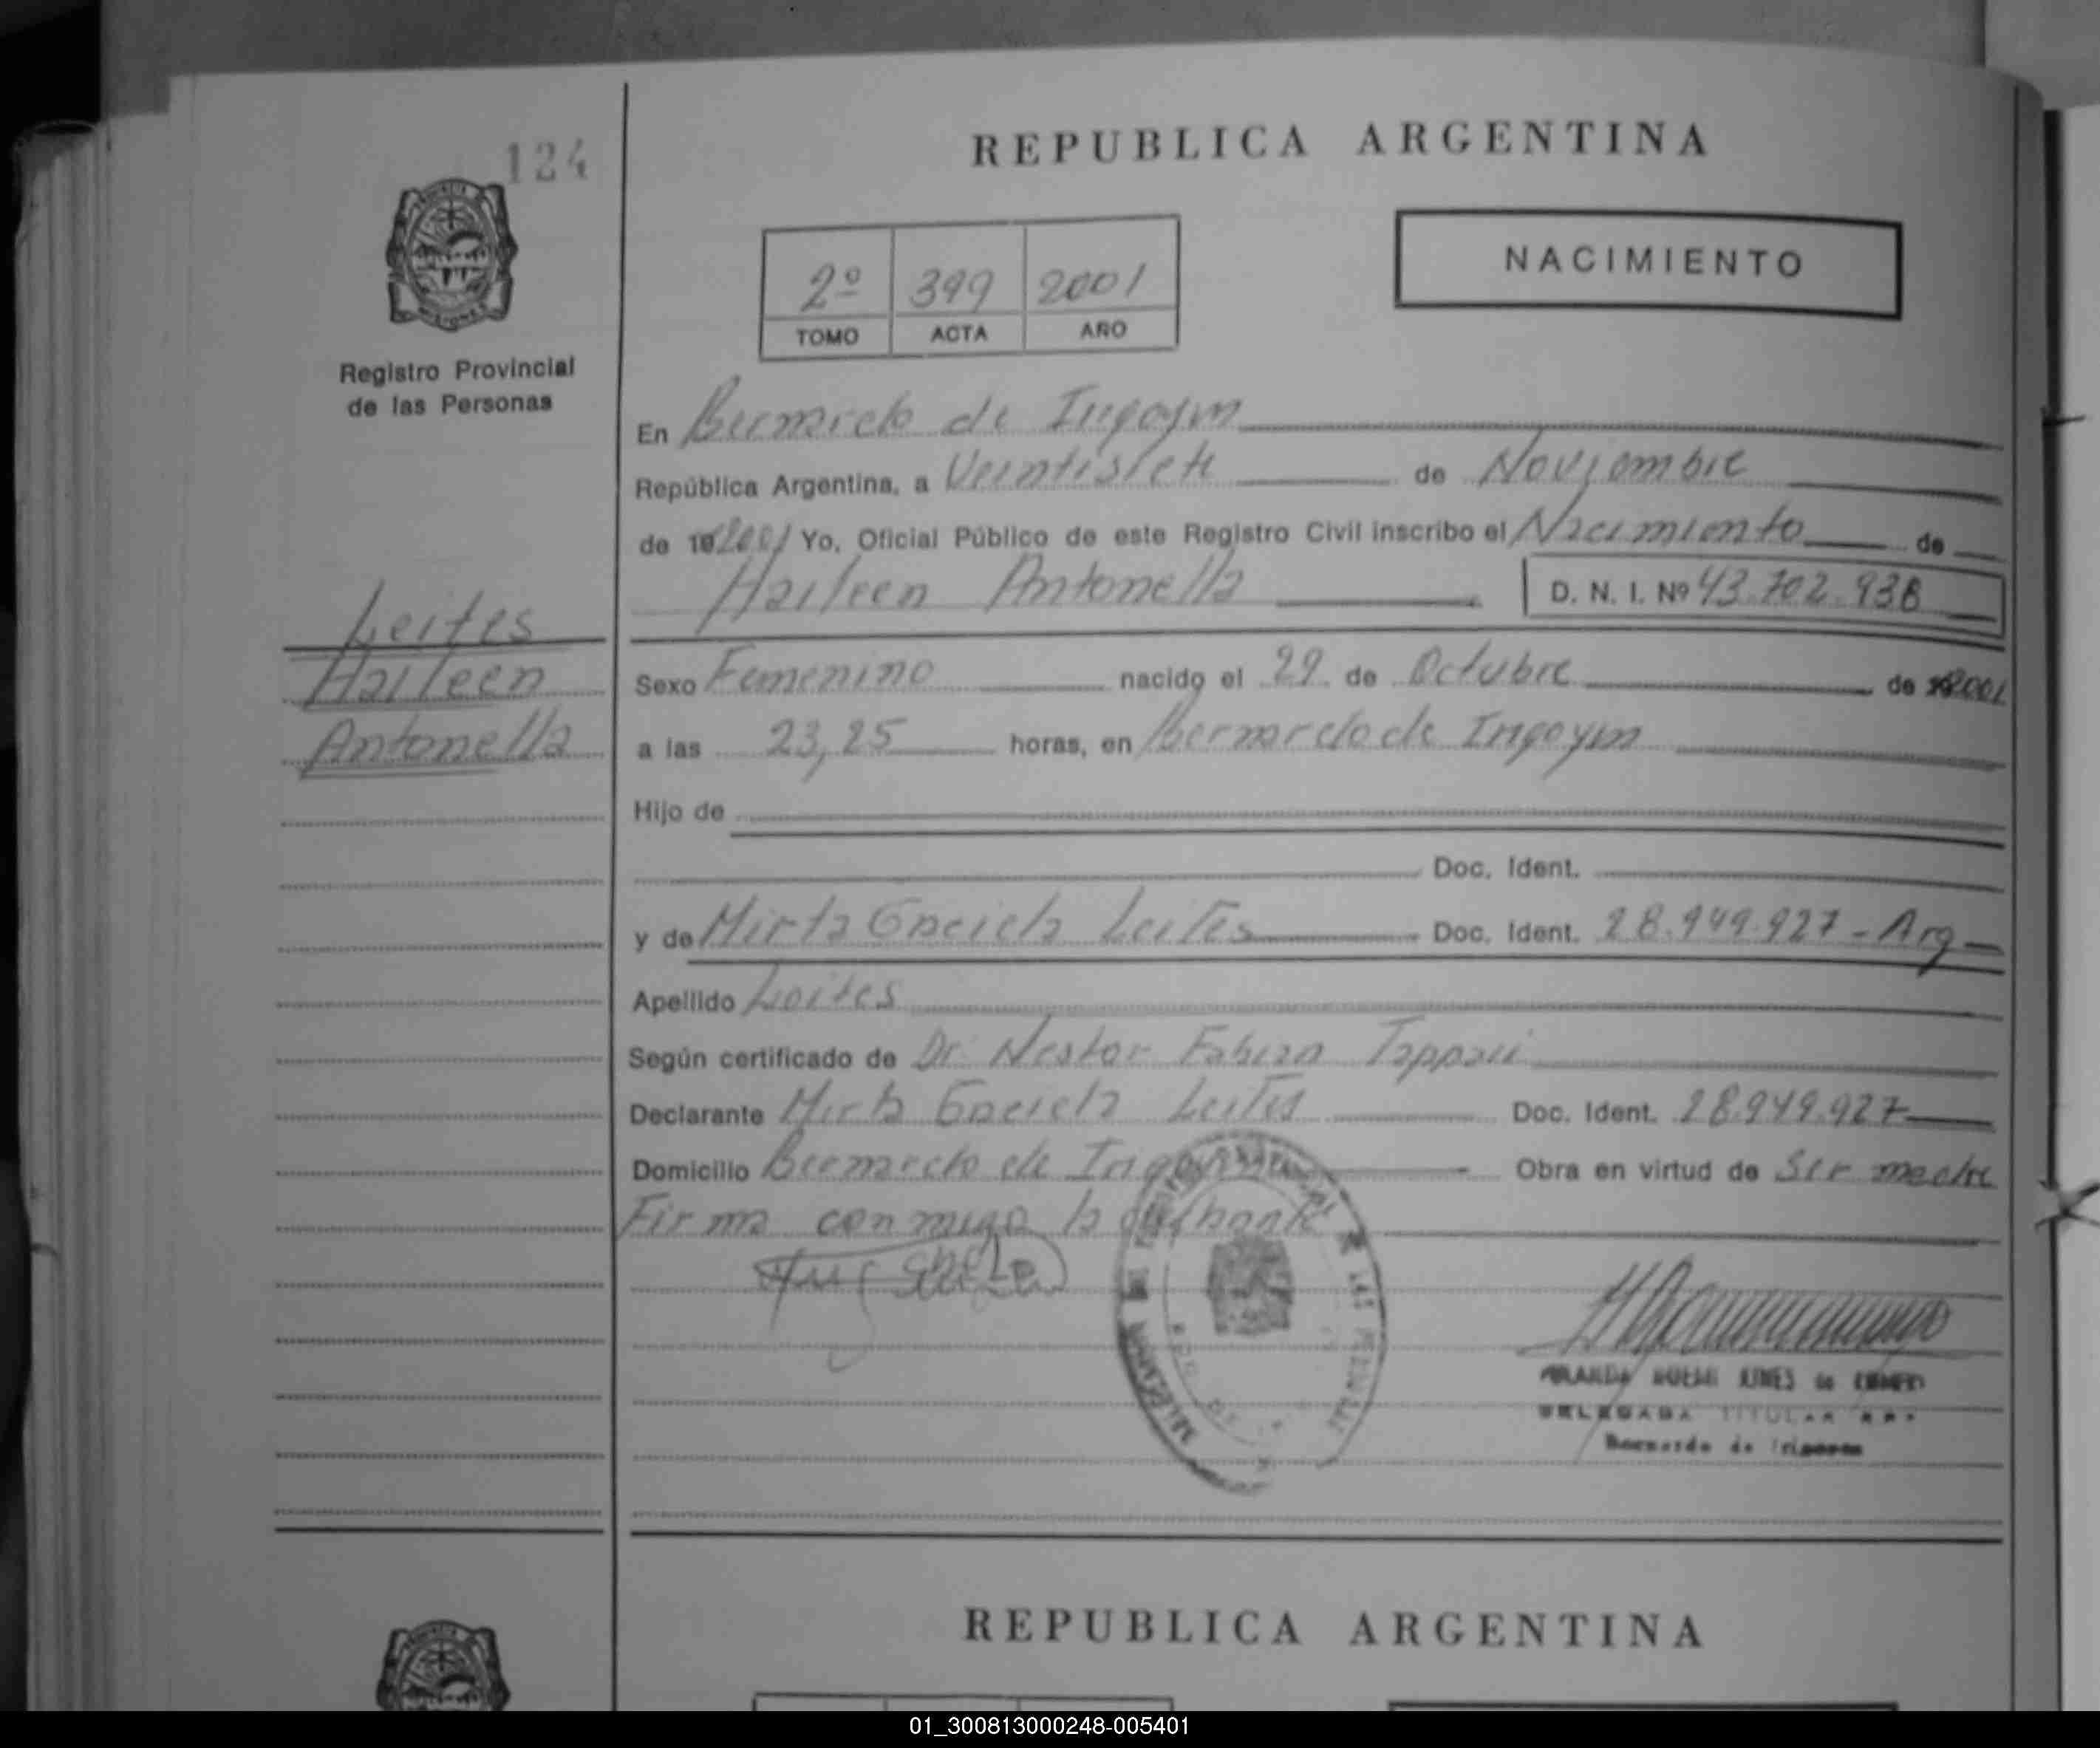 124
REPUBLICA ARGENTINA
2º 399 2001
TOMO ACTA AÑO
NACIMIENTO
Registro Provincial
de las Personas
En Bernardo de Irigoyen
República Argentina, a Veintisiete de Noviembre
de 19 2001 Yo, Oficial Público de este Registro Civil inscribo el Nacimiento de
Haileen Antonella D. N. I. Nº 43.702.938
Leites
Haileen
Antonella
Sexo Femenino nacido el 29 de Octubre de 2001
a las 23,25 horas, en Bernardo de Irigoyen
Hijo de
Doc. Ident.
y de Mirta Graciela Leites Doc. Ident. 28.949.927 - Arg
Apellido Leites
Según certificado de Dr. Nestor Fabian
Declarante Mirta Graciela Leites Doc. Ident. 28.949.927
Domicilio Bernardo de Irigoyen Obra en virtud de Ser madre
Firma conmigo la
DELEGADA TITULAR
Bernardo de Irigoyen
REPUBLICA ARGENTINA
01_300813000248-005401